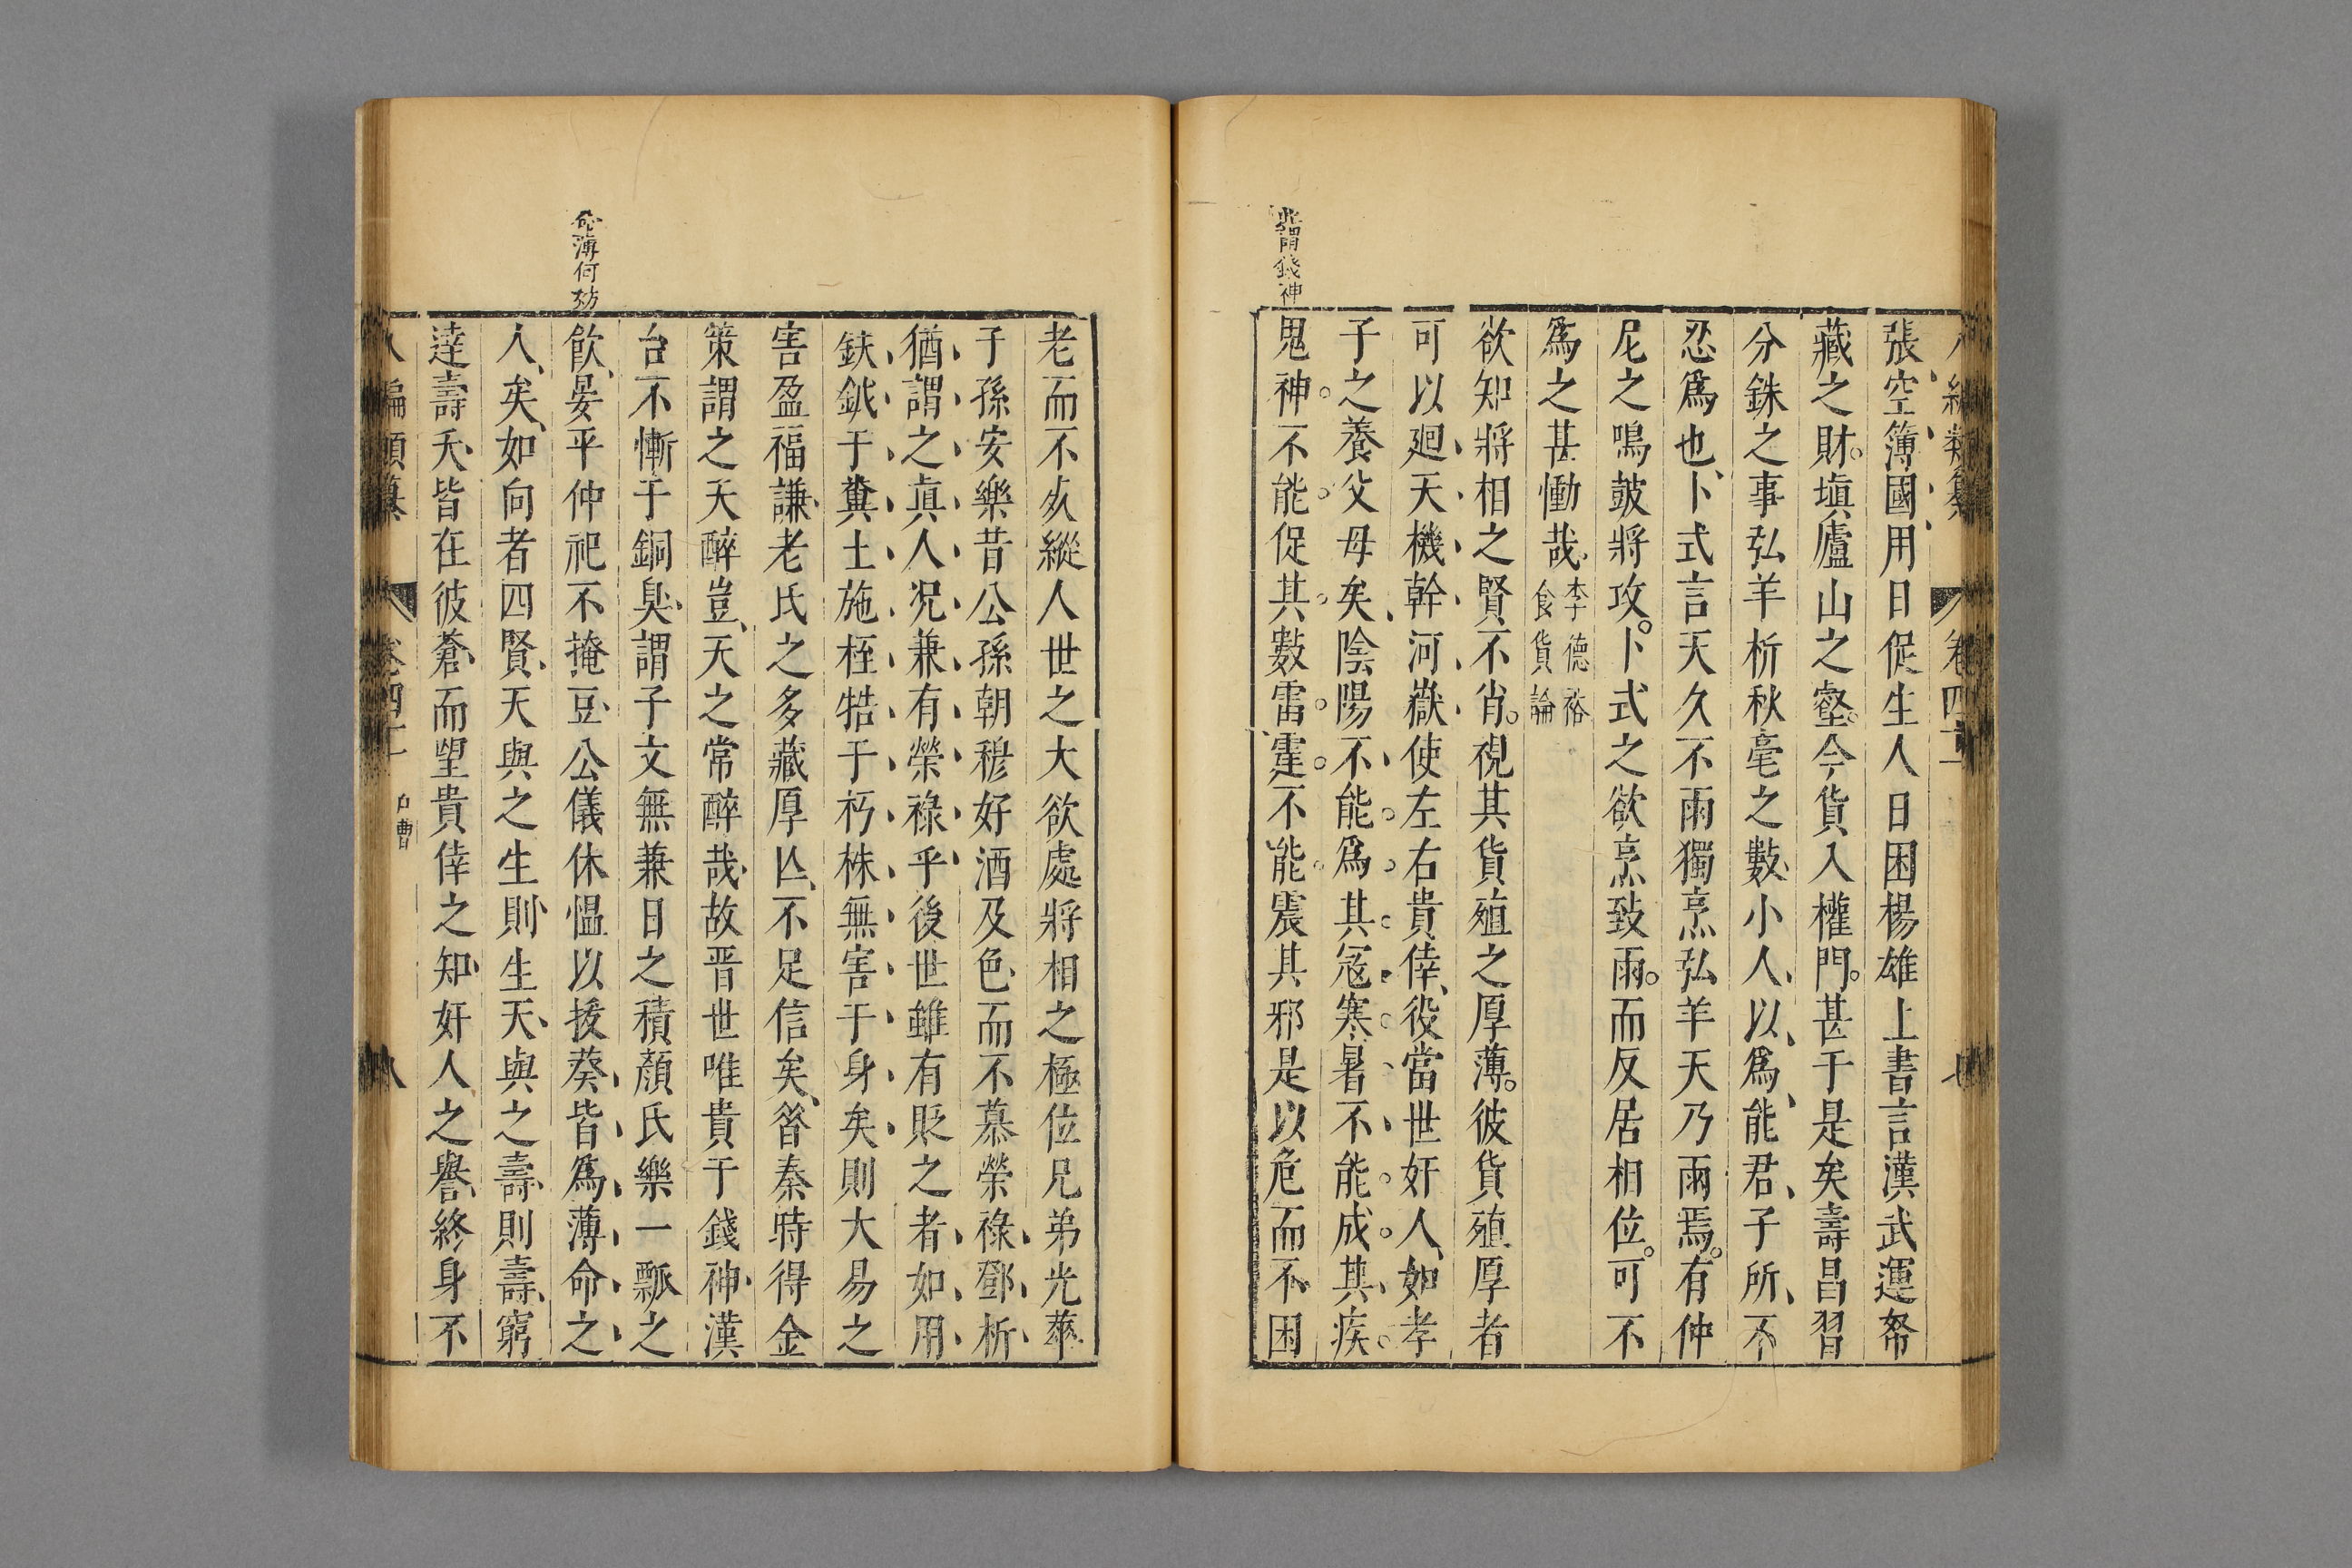 八編類纂 卷四十二 七
張空簿國用日促生人日困楊雄上書言漢武運帑
藏之財填廬山之壑今貨入權門甚于是矣壽昌習
分銖之事弘羊析秋毫之數小人以爲能君子所不
忍爲也卜式言天久不雨獨烹弘羊天乃雨焉有仲
尼之鳴鼓將攻卜式之欲烹致雨而反居相位可不
爲之甚慟哉李德裕食貨論
欲知將相之賢不肖視其貨殖之厚薄彼貨殖厚者
可以廻天機幹河嶽使左右貴倖役當世奸人如孝
子之養父母矣陰陽不能爲其寇寒暑不能成其疾
鬼神不能促其數雷霆不能震其邪是以危而不困
錢神
老而不夭縱人世之大欲處將相之極位兄弟光華
子孫安樂昔公孫朝穆好酒及色而不慕榮祿鄧析
猶謂之真人况兼有榮祿乎後世雖有貶之者如用
鈇鉞于糞土施桎梏于朽株無害于身矣則大易之
害盈福謙老氏之多藏厚亾不足信矣昝秦時得金
策謂之天醉豈天之常醉哉故晋世唯貴于錢神漢
台不慚于銅臭謂子文無兼日之積顏氏樂一瓢之
飮晏平仲祀不掩豆公儀休慍以拔葵皆爲薄命之
命薄何妨
人矣如向者四賢天與之生則生天與之壽則壽窮
達壽夭皆在彼蒼而望貴倖之知奸人之譽終身不
八編類纂 卷四十二 户曹 八